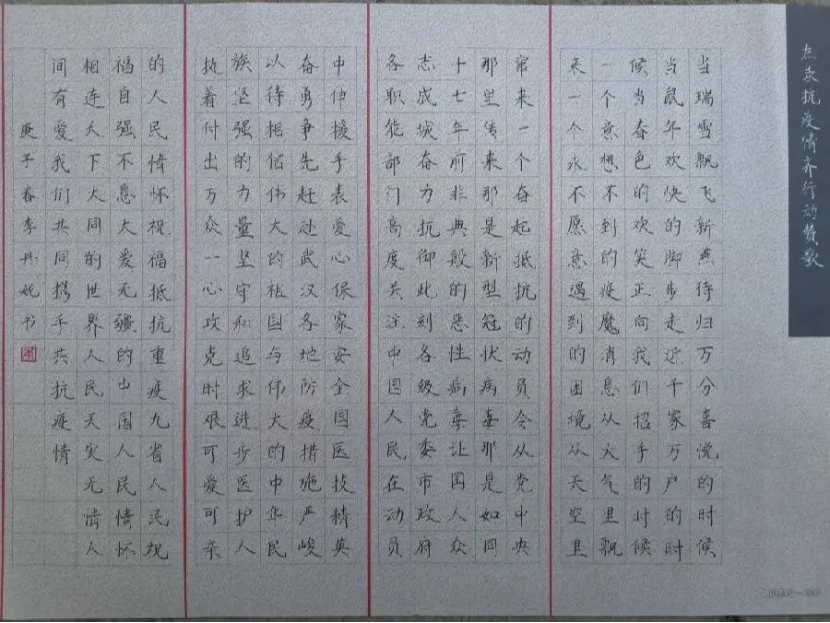 点赞抗疫情齐行动赞歌
当瑞雪飘飞新燕待归万分喜悦的时候
当鼠年欢快的脚步走近千家万户的时
候当春色的欢笑正向我们招手的时候
一个意想不到的疫魔消息从天气里飘
来一个永不愿意遇到的困境从天空里
窜来一个奋起抵抗的动员令从党中央
那里传来那是新型冠状病毒那是如同
十七年前非典般的恶性病毒让国人众
志成城奋力抗御此刻各级党委市政府
各职能部门高度关注中国人民在动员
中伸援手表爱心保家安全国医技精英
奋勇争先赶赴武汉各地防疫措施严峻
以待相信伟大的祖国与伟大的中华民
族坚强的力量坚守和追求进步医护人
执着付出万众一心攻克时艰可爱可亲
的人民情怀祝福抵抗重疫九省人民祝
福自强不息大爱无疆的出国人民情怀
相连天下大同的世界人民天灾无情人
间有爱我们共同携手共抗疫情
庚子春李丹妮书